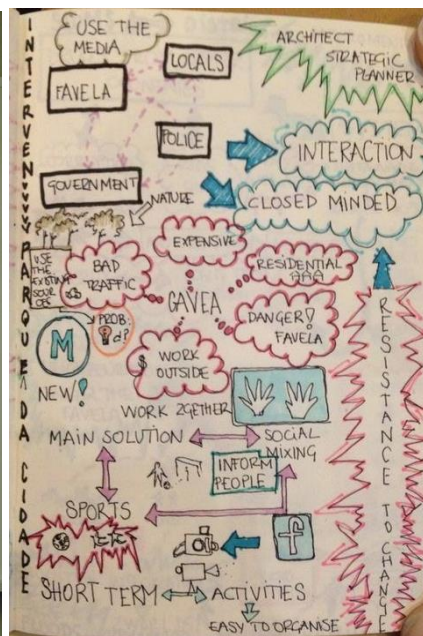 INTERVEN
PARQUE DA CIDADE
USE THE
MEDIA
LOCALS
ARCHITECT
STRATEGIC
PLANNER
FAVELA
POLICE
INTERACTION
GOVERNMENT
NATURE
CLOSED MINDED
EXPENSIVE
USE
THE
EXISTING
SOUR
CES
BAD
TRAFFIC
RESIDENTIAL
GAVEA
PROB.
d?
M
DANGER!
FAVELA
$ WORK
OUTSIDE
NEW!
WORK 2GETHER
MAIN SOLUTION
SOCIAL
MIXING
INFORM
PEOPLE
SPORTS
f
SHORT TERM
ACTIVITIES
EASY TO ORGANISE
RESISTANCE TO CHANGE